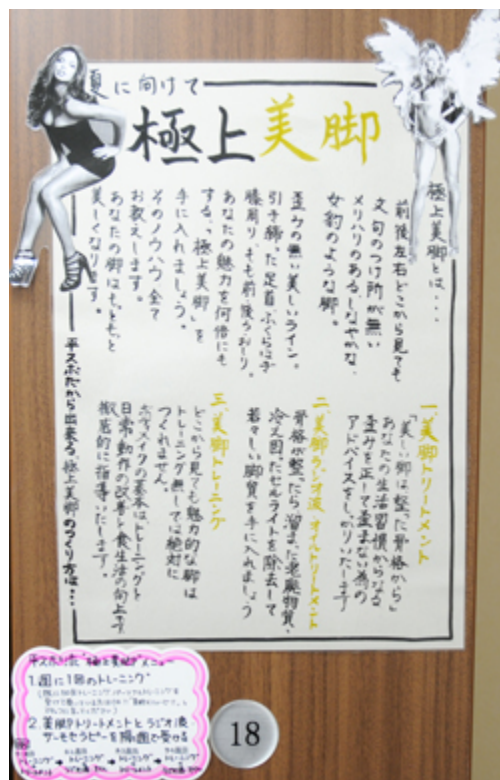 夏に向けて
極上美脚
極上美脚とは・・・
前後左右どこから見ても
文句のつけ所が無い
メリハリのあるしなやかな、
女豹のような脚。
歪みの無い美しいライン。
引き締った足首、ふくらはぎ
膝周り、もも前後、おしり。
あなたの魅力を何倍にも
する、「極上美脚」を
手に入れましょう。
そのノウハウ、全て
お教えします。
あなたの脚はもっともっと
美しくなります。
平スポだから出来る、極上美脚のつくり方は・・・
一、美脚トリートメント
「美しい脚は、整った骨格から」
あなたの生活習慣からなる
歪みを正して歪まない為の
アドバイスをしっかりいたします
二、美脚ラジオ波オイルトリートメント
骨格が整ったら、溜まった老廃物質、
冷え固ったセルライトを除去して
若々しい脚質を手に入れましょう
三、美脚トレーニング
どこから見ても魅力的な脚は
トレーニング無しては絶対に
つくれません。
ボディメイクの基本はトレーニングと
日常動作の改善と食生活の向上です
徹底的に指導いたします。
平スポ流"極上美脚"メニュー
1.週に1回のトレーニング
2.美脚トリートメントとラジオ波
サーモセラピーを隔週で受ける
18